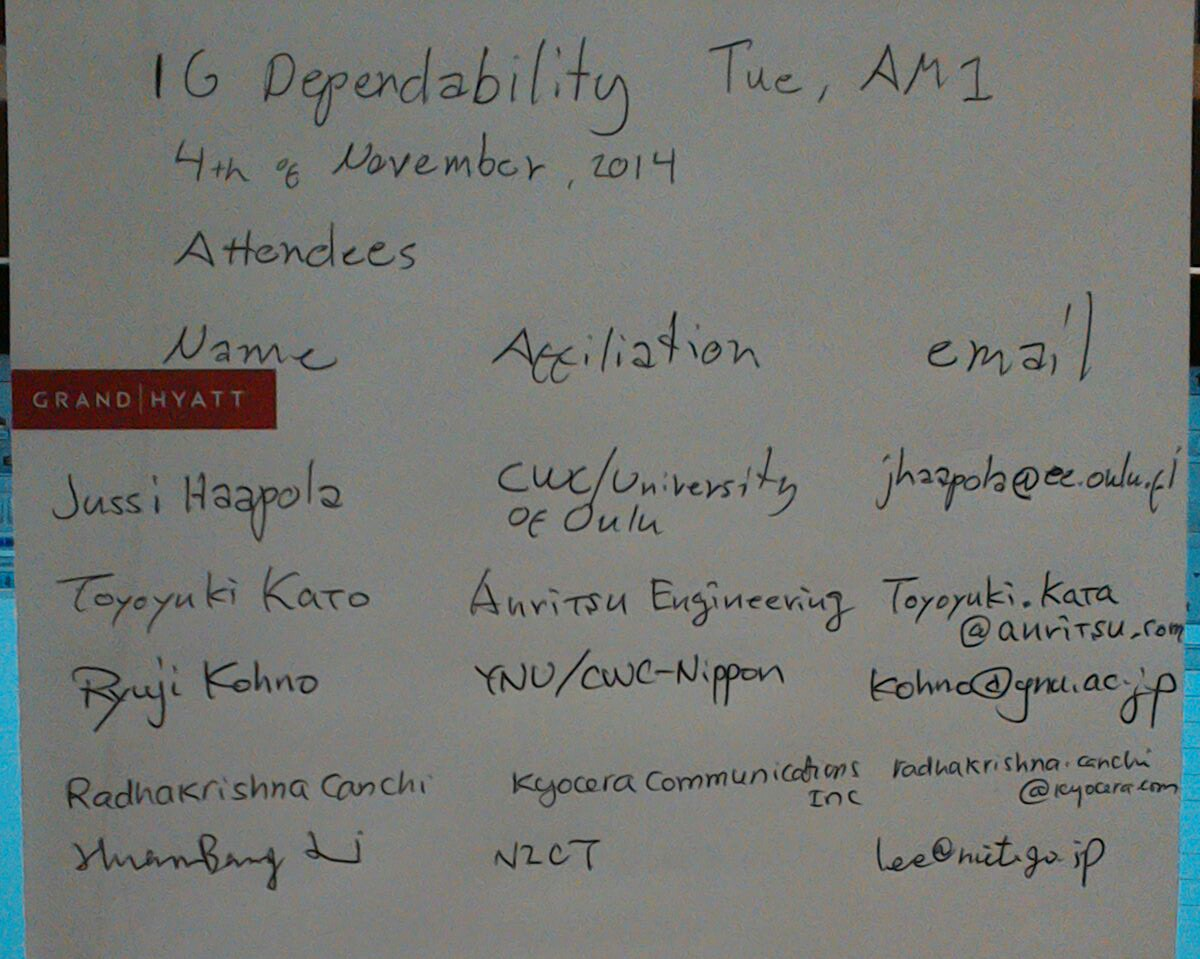 IG Dependability Tue, AM1
4th of November, 2014
Attendees
Name Affiliation email
GRAND HYATT
Jussi Haapola CWC/University jhaapola@ee.oulu.fi
of Oulu
Toyoyuki Kato Anritsu Engineering Toyoyuki.Kata
@anritsu.com
Ryuji Kohno YNU/CWC-Nippon kohno@ynu.ac.jp
Radhakrishna Canchi Kyocera Communications radhakrishna.canchi
Inc @kyocera.com
HuanBang Li NICT lee@nict.go.jp